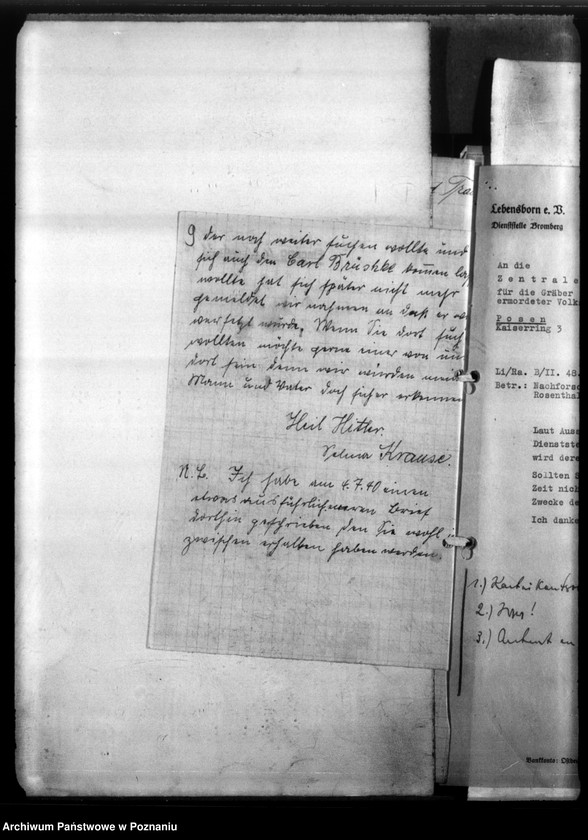 9 der noch weiter suchen wollte und
sich auch den Carl Brüschke kommen
wollte hat sich später nicht mehr
gemeldet wir nahmen an daß er
versetzt wurde. Wenn Sie dort
wollten möchte gerne einer von
dort sein denn wir würden
Mann und Vater doch sicher erkennen
Heil Hitler.
Selma Krause.
N.B. Ich habe am 4.7.40 einen
etwas ausführlicheren Brief
dorthin geschrieben den Sie wohl
zwischen erhalten haben werden
Lebensborn e. V.
Dienststelle Bromberg
An die
Zentrale
für die Gräber
ermordeter Volk
Posen
Kaiserring 3
Li/Ra. B/II. 48.
Betr.: Nachfors
Rosenthal
Laut Aus
Dienstste
wird dere
Sollten
Zeit nich
Zwecke de
Ich danke
1.)
2.)
3.)
Bankkonto:
Archiwum Państwowe w Poznaniu